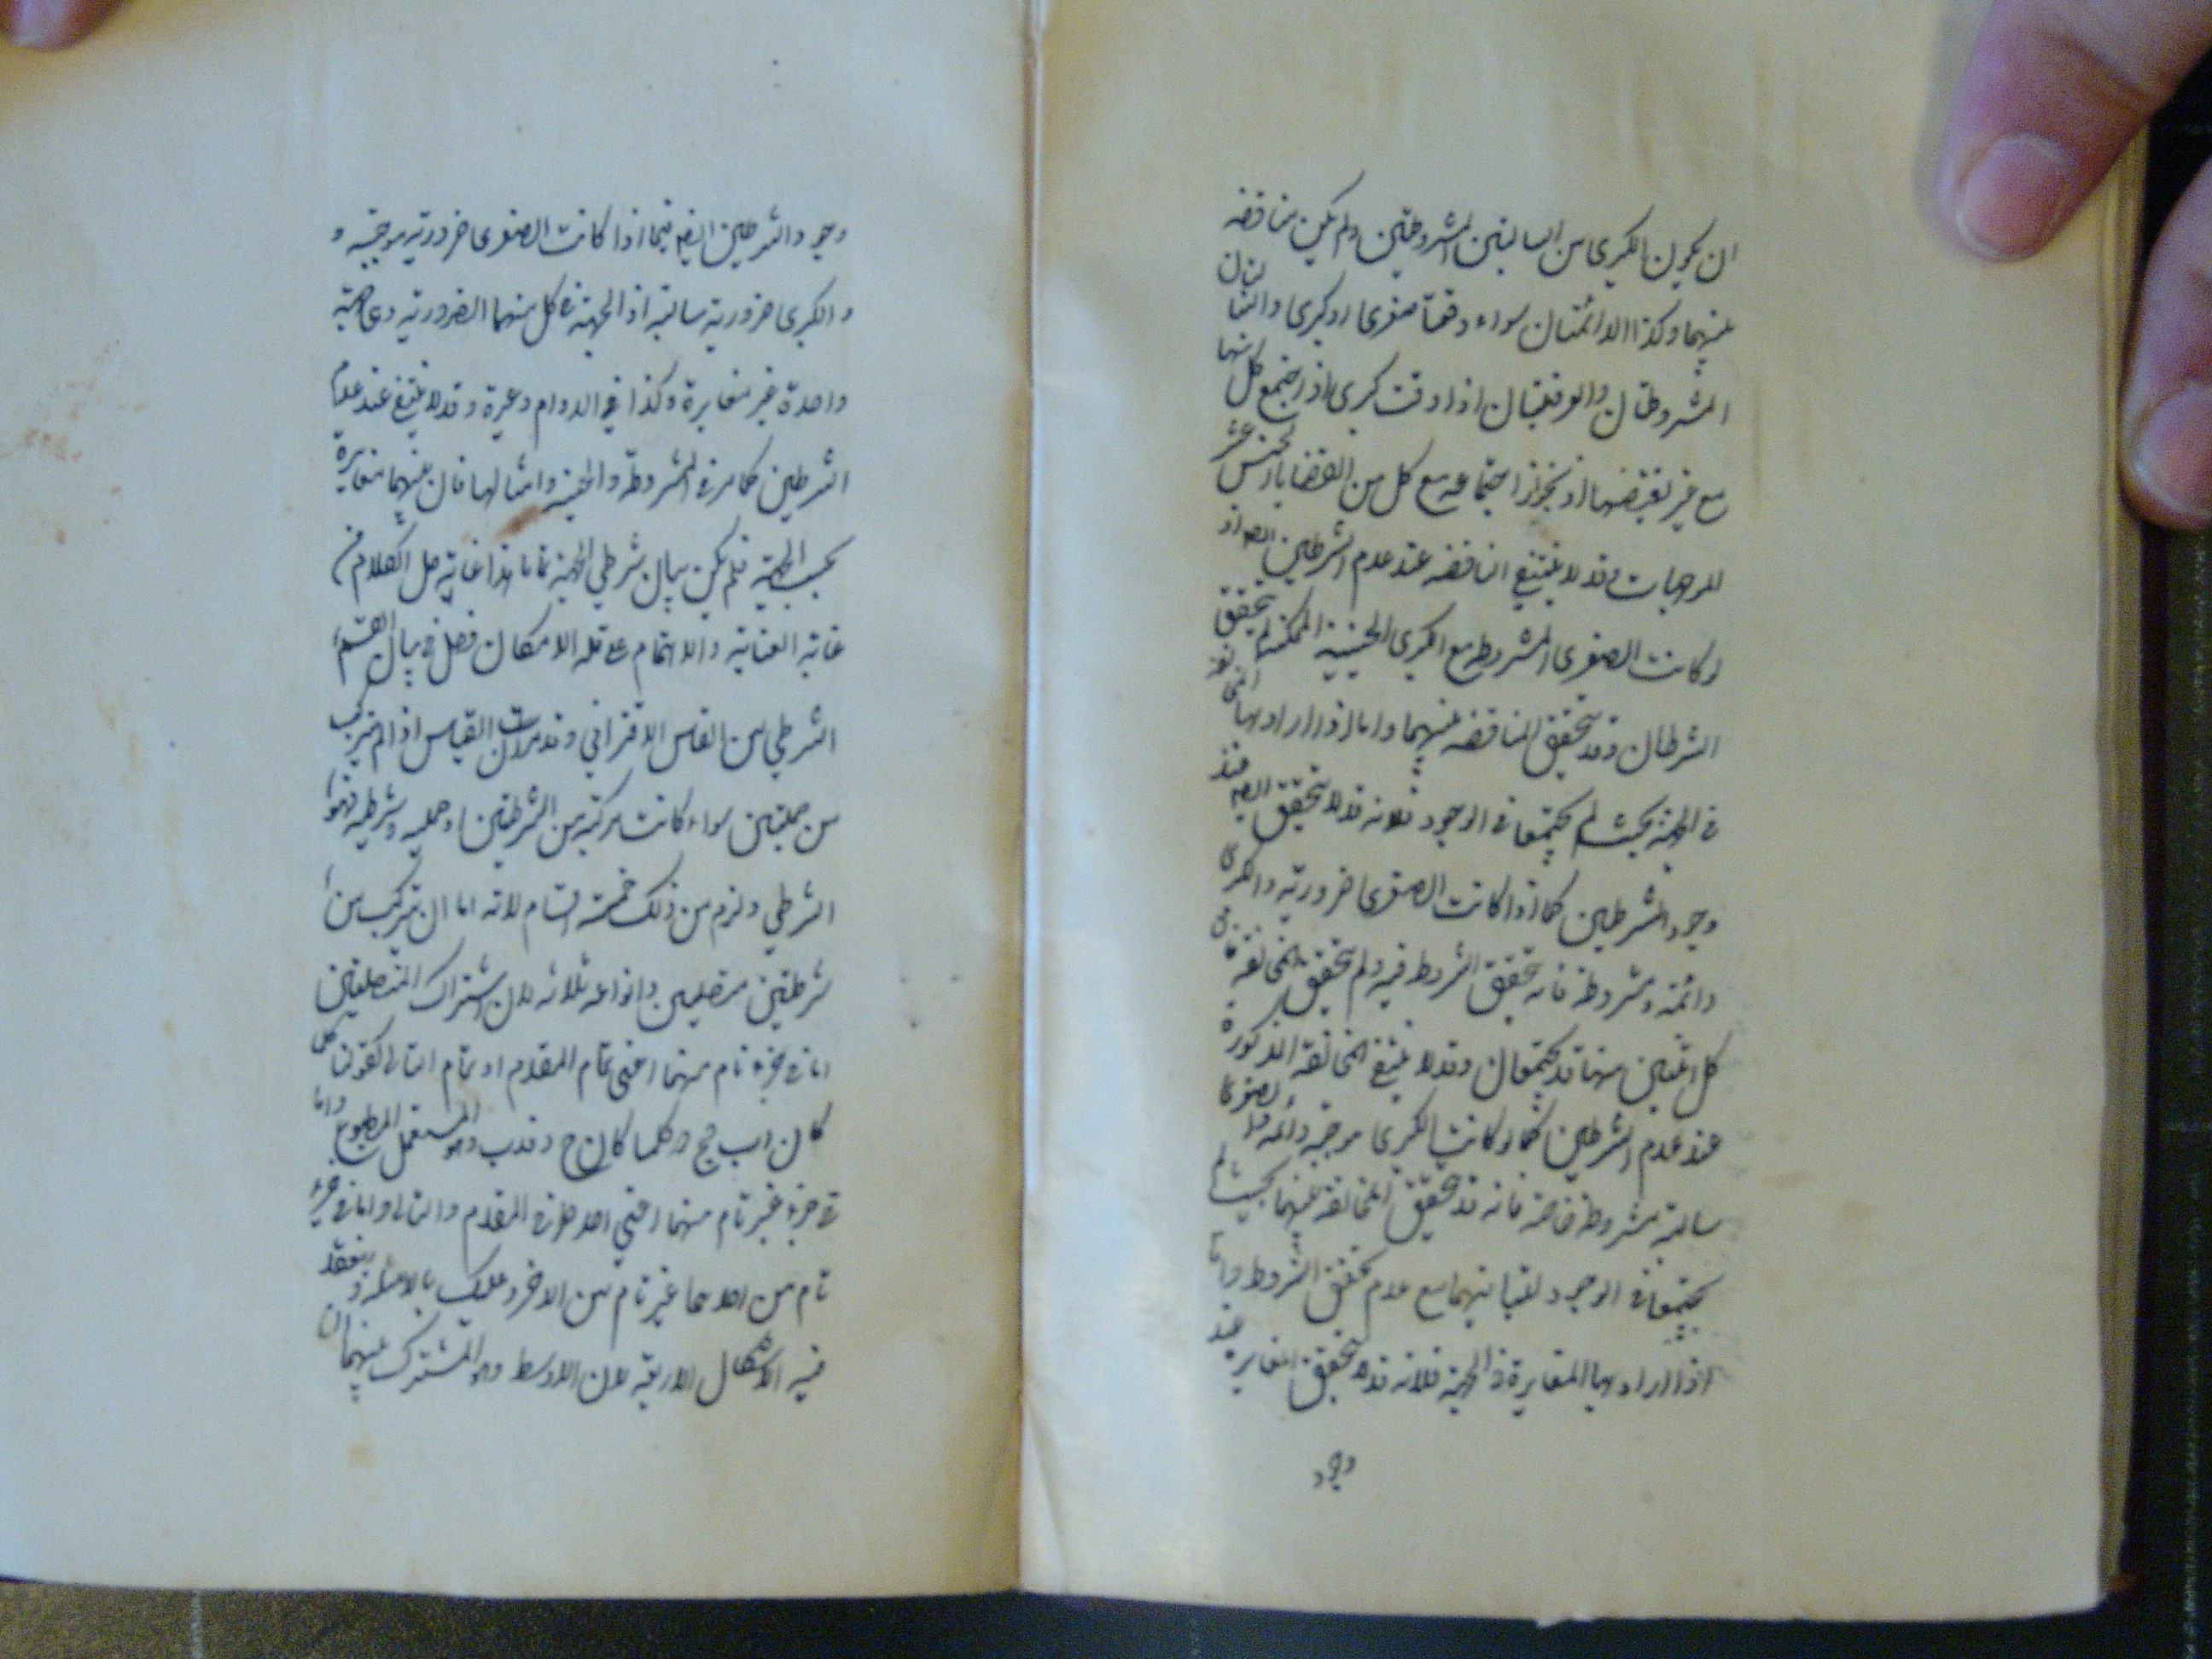 ان يكون الكبرى من السالبتين المشروطتين ولم يكن مناقضه
بينهما وكذا الدائمتان سواء وقعتا صغرى او كبرى والثا
المشروطتان والوقتيتان اذا وقعت كبرى اذ اجتمع كل منها
مع غير نقيضها اذ يجوز اجتماعه مع كل من القضايا الخمس عشر
الموجبات وقد لا ينتفي المناقضه عند عدم الشرطين
لو كانت الصغرى المشروطه مع الكبرى الحينية الممكنه لم يتحقق
الشرطان وقد يتحقق المناقضه بينهما واما اذا اراد بها
في الجهة بحيث لم يجتمعا في الوجود فلانه قد لا يتحقق ايضا عند
وجود الشرطين كما اذا كانت الصغرى ضرورية والكبرى
دائمة ومشروطة فانه يتحقق الشروط فيه ولم يتحقق المخالفة فان
كل اثنين منها قد يجتمعان وقد لا ينتفي المخالفة المذكورة
عند عدم الشرطين كما لو كانت الكبرى موجبه دائمه والصغرى
سالبة مشروطة خاصة فانه قد يتحقق المخالفة بينهما بحيث لم
يجتمعا في الوجود لتباينهما مع عدم تحقق الشروط واما
اذا اراد بها المغايرة في الجهة فلانه قد لا يتحقق المغايرة عند
وجود
وجود الشرطين ايضا فيما اذا كانت الصغرى ضرورية موجبة و
والكبرى ضرورية سالبة اذ الجهة في كل منهما الضرورية وهي جهة
واحدة غير مغايرة وكذا في الدوام وغيره وقد لا ينتفي عند عدم
الشرطين كما مر في المشروطة والحينية وامثالها فان بينهما مغايرة
بحسب الجهة فلم يكن بيان شرطي الجهة تماما هذا غاية حل الكلام في
غاية العناية والاهتمام على قلة الامكان فصل في بيان القسم ا
الشرطي من القياس الاقتراني وقد مر ان القياس اذا لم يتركب
من حمليتين سواء كانت مركبة من الشرطيتين او حمليه وشرطيه فهو ا
الشرطي ولزم من ذلك خمسة اقسام لانه اما ان يتركب من ا
شرطيتين متصلتين وانواعه ثلاثه لان اشتراك المتصلتين
اما في جزء تام منهما اعني تمام المقدم او تمام التالي كقولنا كلما
كان اب فج د وكلما كان ج د فه‍ ز وهو المستعمل المطبوع واما
في جزء غير تام منهما اعني احد طرفي المقدم والتالي واما في جزء
تام من احدهما غير تام من الاخر وعليك بالامثلة وينعقد
فيه الاشكال الاربعة لان الاوسط وهو المشترك بينهما ان